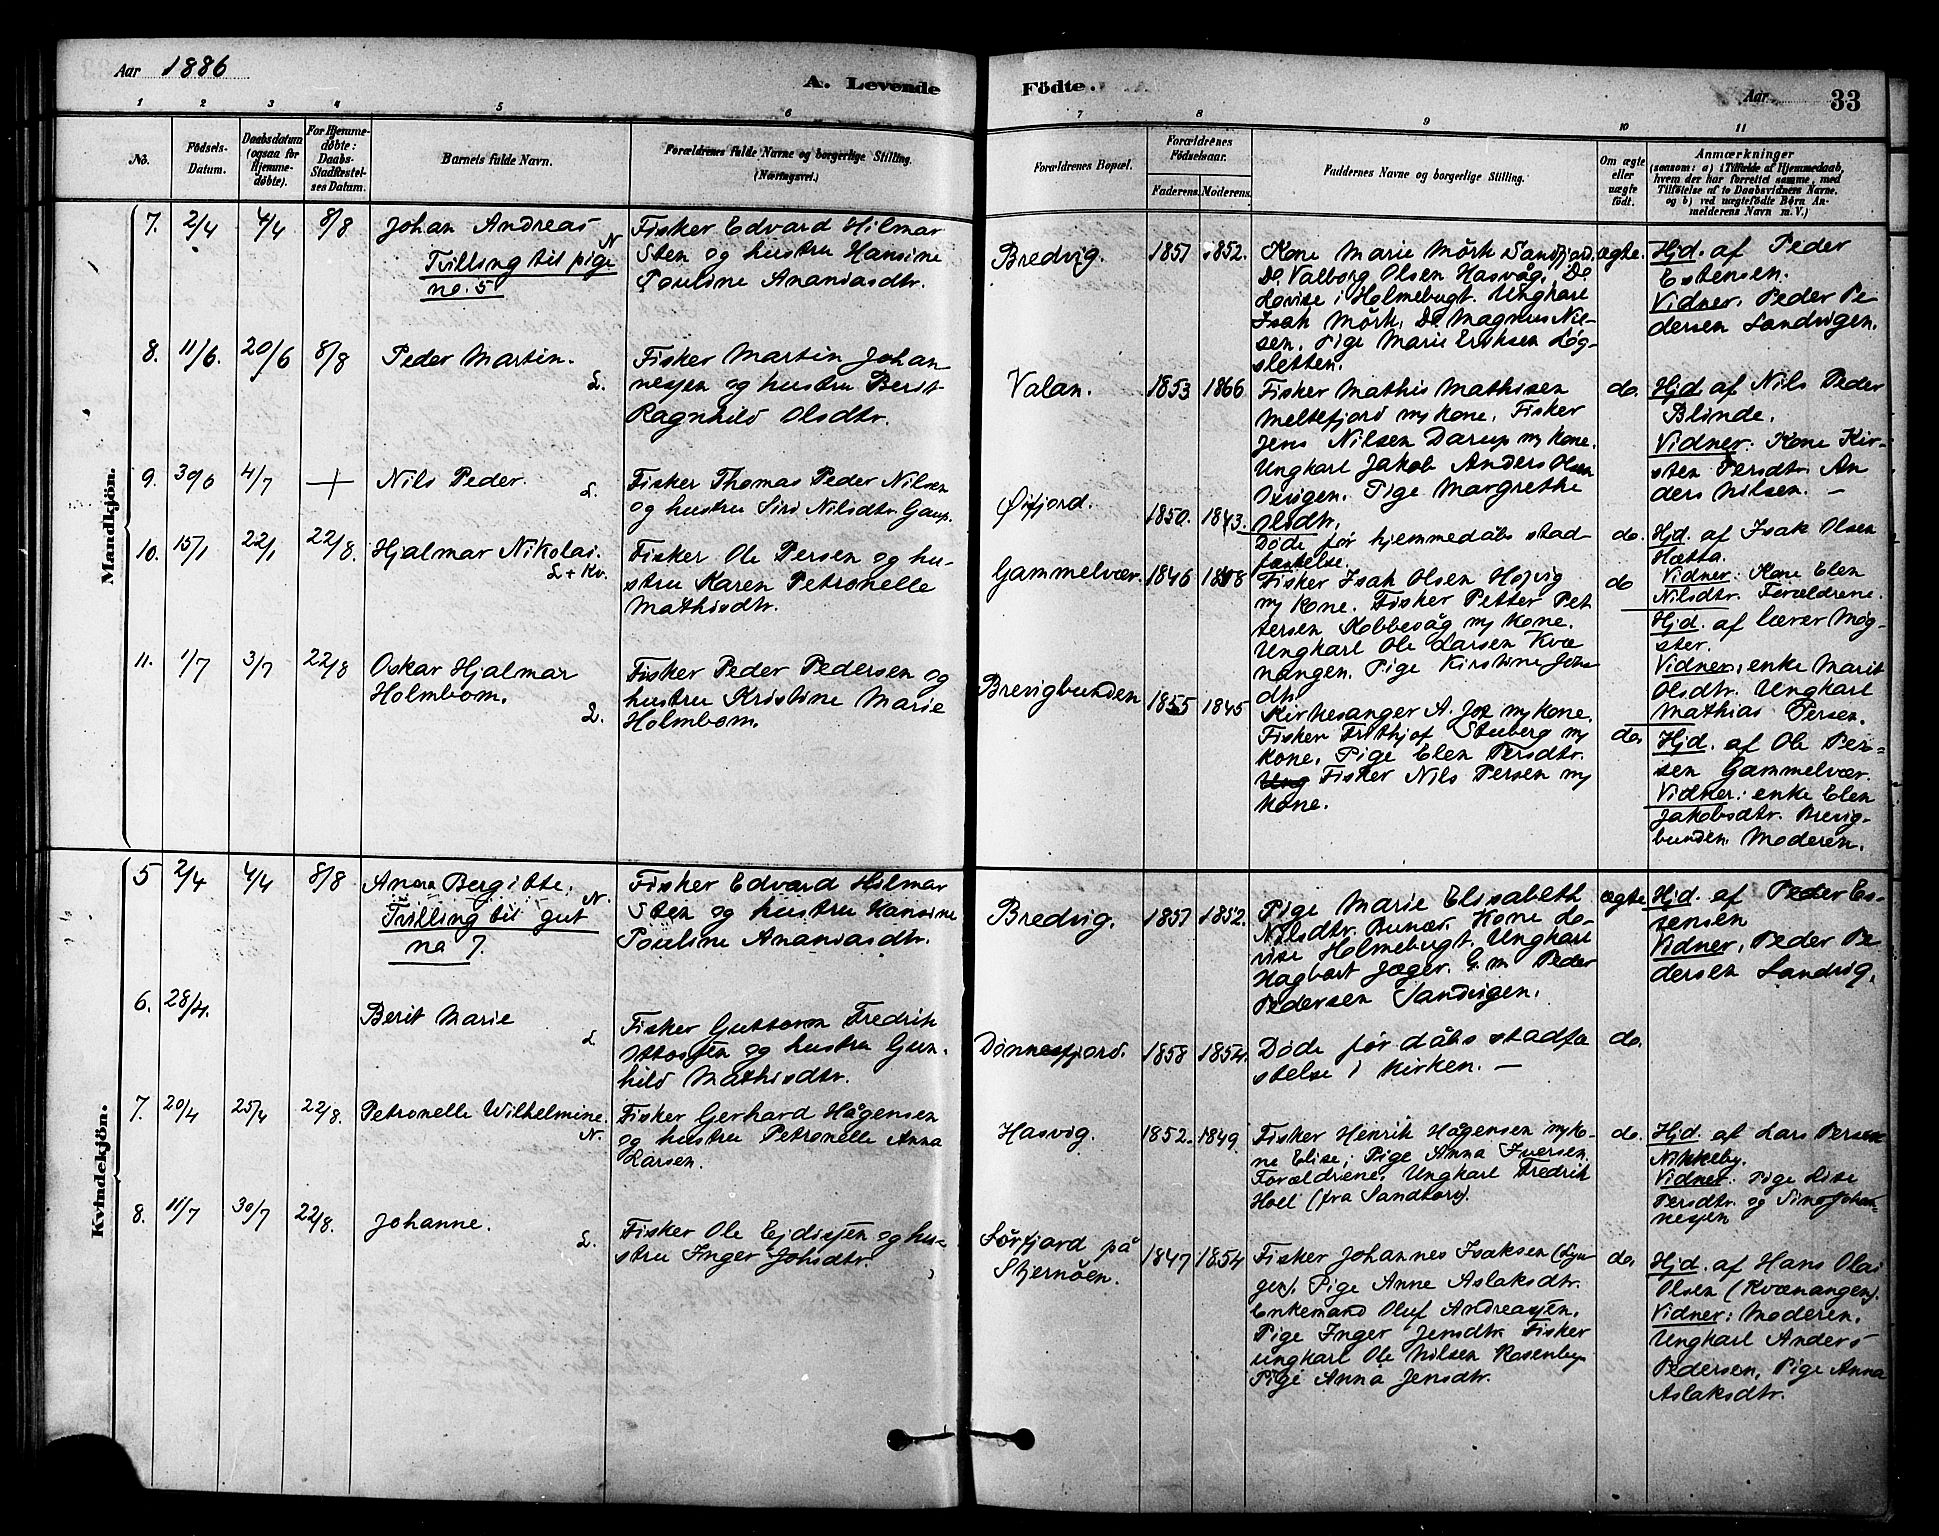 Aar 1886
A. Levende Födte.
Aar 33
1 2 3 4 5 6 7 8 9 10 11
No.
Födsels-Datum.
Daabsdatum (ogsaa for Hjemmedöbte).
For Hjemmedöbte: Daabs-Stadfæstelses Datum.
Barnets fulde Navn.
Forældrenes fulde Navne og borgerlige Stilling.
(Næringsvei.)
Forældrenes Bopæl.
Forældrenes Födselsaar.
Faderens. Moderens.
Faddernes Navne og borgerlige Stilling.
Om ægte eller uægte födt.
Anmærkninger
(saasom: a) i Tilfælde af Hjemmedaab, hvem der har forrettet samme, med Tilføielse af to Daabsvidners Navne, og b) ved uægtefödte Børn Anmelderens Navn m. V.)
Mandkjön.
7. 2/4 4/4 8/8 Johan Andreas N
Tvilling til pige
no. 5
Fisker Edvard Hilmar
Sten og hustru Hansine
Pouline Ananiasdtr.
Bredvig. 1857 1852.
Kone Marie Mörk Sandfjord.
Do Valborg Olsen Hasvåg, Do
Lovise i Holmebugt. Ungkarl
Isak Mörk, Do Magnus Nil-
sen. Pige Marie Eriksen Løg-
sletten.
ægte.
Hjd. af Peder
Estensen.
Vidner. Peder Pe
dersen Sandvigen.
8. 11/6. 20/6 8/8 Peder Martin. L.
Fisker Martin Johan
nesjen og hustru Berit
Ragnhild Olsdtr.
Valan. 1853 1866
Fisker Mathis Mathisen
Meltefjord m/ kone. Fisker
Jens Nilsen Darup m/ kone.
Ungkarl Jakob Anders Olsen
Oxvigen. Pige Margrethe
Olsdtr.
do.
Hjd. af Nils Peder
Blinde.
Vidner: Kone Kir-
sten Persdtr. An
ders Nilsen. —
9. 30/6 4/7 + Nils Peder. L.
Fisker Thomas Peder Nilsen
og hustru Siri Nilsdtr. Gaup.
Øxfjord. 1850. 1843.
Døde før hjemmedåbs stad
fæstelse.
do.
Hjd. af Isak Olsen
Hætta.
Vidner: Kone Elen
Nilsdtr. Forældrene.
10. 15/1 22/1 22/8. Hjalmar Nikolai. L + Kv.
Fisker Ole Persen og hu-
stru Karen Petronelle
Mathisdtr.
Gammelvær. 1846 1848
Fisker Isak Olsen Hojvig
m/ kone. Fisker Petter Pet
tersen Kobbevåg m/ kone.
Ungkarl Ole Larsen Kvæ
nangen. Pige Kirstine Jens
dtr.
do
Hjd. af lærer Møg-
ster.
Vidner, enke Marit
Olsdtr. Ungkarl
Mathias Persen.
11. 1/7 3/7 22/8 Oskar Hjalmar
Holmbom. L.
Fisker Peder Pedersen og
hustru Kristine Marie
Holmbom.
Brevigbunden 1855 1845
Kirkesanger A. m/ kone.
Fisker Frithjof Stuberg m/
kone, Pige Elen Persdtr.
Ung Fisker Nils Persen m/
kone.
do.
Hjd. af Ole Per-
sen Gammelvær.
Vidner: enke Elen
Jakobsdtr. Brevig-
bunden. Moderen.
Kvindekjön.
5 2/4 4/4 8/8 Anna Bergitte. N.
Tvilling til gut
no 7.
Fisker Edvard Hilmar
Sten og hustru Hansine
Pouline Ananiasdtr.
Bredvig. 1857 1852.
Pige Marie Elisabeth
Nilsdtr. Bunær. Kone Lo-
vise Holmebugt, Ungkarl
Hagbart Jæger. G. m. Peder
Pedersen Sandvigen.
ægte
Hjd. af Peder Es-
tensen
Vidner, Peder Pe
dersen Sandvig.
6. 28/4. Berit Marie L
Fisker Guttorm Fredrik
Ottosjen og hustru Gun-
hild Mathisdtr.
Dønnesfjord. 1858 1854.
Døde før dåbs stadfæ
stelse i kirken. —
do.
7. 20/4 25/4 22/8. Petronelle Wilhelmine. N.
Fisker Gerhard Hågensen
og hustru Petronelle Anna
Larsen.
Hasvig. 1852. 1849.
Fisker Henrik Hågensen m/ ko-
ne Elise, Pige Anna Iversen.
Forældrene. Ungkarl Fredrik
Hoel (fra Sandtorv).
do.
Hjd. af Lars Persen
Nikkeby.
Vidner: Pige Lise
Persdtr. og Sina Johan-
nesjen
8. 11/7 30/7 22/8. Johanne. L.
Fisker Ole Ejdisjen og hu-
stru Inger Johsdtr.
Sørfjord på
Stjernöen. 1847 1854
Fisker Johannes Isaksen (Lyn-
gen). Pige Anne Aslaksdtr.
Enkemand Oluf Andreasjen.
Pige Inger Jensdtr. Fisker
ungkarl Ole Nilsen Rosenby
Pige Anna Jensdtr.
do.
Hjd. af Hans Olai
Olsen (Kvænangen).
Vidner: Moderen.
Ungkarl Anders
Pedersen, Pige Anna
Aslaksdtr.